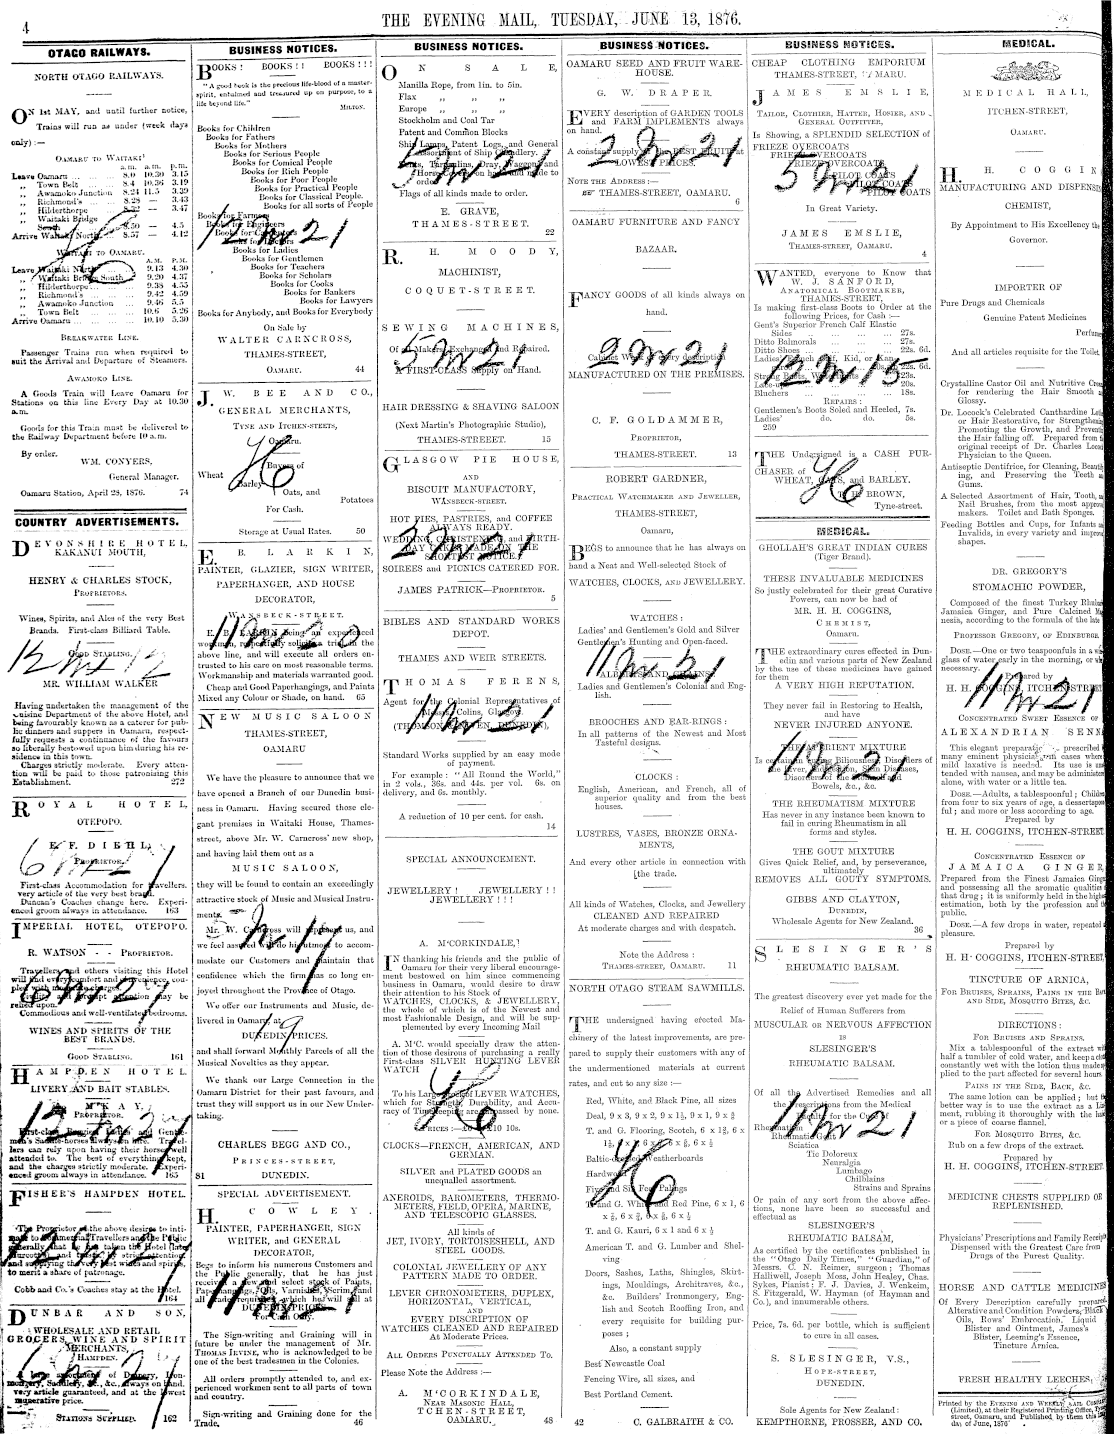 4
THE EVENING MAIL, TUESDAY, JUNE 13, 1876.
OTAGO RAILWAYS.
NORTH OTAGO RAILWAYS.
ON 1st MAY, and until further notice,
Trains will run as under (week days
only) :—
OAMARU TO WAITAKI
a.m. a.m. p.m.
Leave Oamaru ... 8.0 10.30 3.15
„ Town Belt ... 8.4 10.36 3.19
„ Awamoko Junction 8.24 11.5 3.39
„ Richmond's ... 8.28 — 3.43
„ Hilderthorpe — 3.47
„ Waitaki Bridge
South — 4.5
Arrive Waitaki North 8.57 — 4.12
WAITAKI TO OAMARU.
A.M. P.M.
Leave Waitaki North 9.13 4.30
„ Waitaki Bridge South 9.20 4.37
„ Hilderthorpe 9.38 4.55
„ Richmond's 9.42 4.59
„ Awamoko Junction 9.46 5.5
„ Town Belt 10.6 5.26
Arrive Oamaru 10.10 5.30
BREAKWATER LINE.
Passenger Trains run when required to
suit the Arrival and Departure of Steamers.
AWAMOKO LINE.
A Goods Train will Leave Oamaru for
Stations on this line Every Day at 10.30
a.m.
Goods for this Train must be delivered to
the Railway Department before 10 a.m.
By order.
WM. CONYERS,
General Manager.
Oamaru Station, April 28, 1876. 74
COUNTRY ADVERTISEMENTS.
DEVONSHIRE HOTEL,
KAKANUI MOUTH,
HENRY & CHARLES STOCK,
PROPRIETORS.
Wines, Spirits, and Ales of the very Best
Brands. First-class Billiard Table.
GOOD STABLING.
12 M 12
MR. WILLIAM WALKER
Having undertaken the management of the
Cuisine Department of the above Hotel, and
being favourably known as a caterer for pub-
lic dinners and suppers in Oamaru, respect-
fully requests a continuance of the favours
so liberally bestowed upon him during his re-
sidence in this town.
Charges strictly moderate. Every atten-
tion will be paid to those patronising this
Establishment. 272
ROYAL HOTEL,
OTEPOPO.
E. F. DIEHL,
PROPRIETOR.
First-class Accommodation for travellers.
very article of the very best brand.
Duncan's Coaches change here. Experi-
enced groom always in attendance. 163
IMPERIAL HOTEL, OTEPOPO.
R. WATSON - - PROPRIETOR.
Travellers and others visiting this Hotel
Commodious and well-ventilated bedrooms.
WINES AND SPIRITS OF THE
BEST BRANDS.
GOOD STABLING. 161
HAMPDEN HOTEL
LIVERY AND BAIT STABLES.
PROPRIETOR.
lers can rely upon having their horses well
attended to. The best of everything kept,
and the charges strictly moderate. Experi-
enced groom always in attendance. 165
FISHER'S HAMPDEN HOTEL.
The Proprietor of the above desires to inti-
to merit a share of patronage.
Cobb and Co.'s Coaches stay at the Hotel.
164
DUNBAR AND SON,
WHOLESALE AND RETAIL
GROCERS, WINE AND SPIRIT
MERCHANTS,
HAMPDEN.
very article guaranteed, and at the lowest
remunerative price.
STATIONS SUPPLIED. 162
BUSINESS NOTICES.
BOOKS ! BOOKS !! BOOKS !!!
"A good book is the precious life-blood of a master-
spirit, embalmed and treasured up on purpose, to a
life beyond life."
MILTON.
Books for Children
Books for Fathers
Books for Mothers
Books for Serious People
Books for Comical People
Books for Rich People
Books for Poor People
Books for Practical People
Books for Classical People.
Books for all sorts of People
Books for Farmers
Books for Engineers
12 M 21
Books for Ladies
Books for Gentlemen
Books for Teachers
Books for Scholars
Books for Cooks
Books for Bankers
Books for Lawyers
Books for Anybody, and Books for Everybody
On Sale by
WALTER CARNCROSS,
THAMES-STREET,
OAMARU. 44
J. W. BEE AND CO.,
GENERAL MERCHANTS,
TYNE AND ITCHEN-STEETS,
Oamaru.
Buyers of
Wheat
Barley
Oats, and
Potatoes
For Cash.
Storage at Usual Rates. 50
E. B. LARKIN,
PAINTER, GLAZIER, SIGN WRITER,
PAPERHANGER, AND HOUSE
DECORATOR,
WANSBECK-STREET.
E. B. LARKIN being an experienced
workman, respectfully solicits a trial in the
above line, and will execute all orders en-
trusted to his care on most reasonable terms.
Workmanship and materials warranted good.
Cheap and Good Paperhangings, and Paints
Mixed any Colour or Shade, on hand. 65
NEW MUSIC SALOON
THAMES-STREET,
OAMARU
We have the pleasure to announce that we
have opened a Branch of our Dunedin busi-
ness in Oamaru. Having secured those ele-
gant premises in Waitaki House, Thames-
street, above Mr. W. Carncross' new shop,
and having laid them out as a
MUSIC SALOON,
they will be found to contain an exceedingly
attractive stock of Music and Musical Instru-
ments.
Mr. W. Carncross will represent us, and
we feel assured will do his utmost to accom-
modate our Customers and maintain that
confidence which the firm has so long en-
joyed throughout the Province of Otago.
We offer our Instruments and Music, de-
livered in Oamaru, at
DUNEDIN PRICES.
and shall forward Monthly Parcels of all the
Musical Novelties as they appear.
We thank our Large Connection in the
Oamaru District for their past favours, and
trust they will support us in our New Under-
taking.
CHARLES BEGG AND CO.,
PRINCES-STREET,
81 DUNEDIN.
SPECIAL ADVERTISEMENT.
H. COWLEY,
PAINTER, PAPERHANGER, SIGN
WRITER, and GENERAL
DECORATOR,
Begs to inform his numerous Customers and
the Public generally, that he has just
DUNEDIN PRICES
For Cash Only.
The Sign-writing and Graining will in
future be under the management of Mr.
THOMAS IRVINE, who is acknowledged to be
one of the best tradesmen in the Colonies.
All orders promptly attended to, and ex-
perienced workmen sent to all parts of town
and country.
Sign-writing and Graining done for the
Trade. 46
BUSINESS NOTICES.
ON SALE,
Manilla Rope, from 1in. to 5in.
Flax „ „ „
Europe „ „ „
Stockholm and Coal Tar
Patent and Common Blocks
Ship Lamps, Patent Logs, and General
Assortment of Ship Chandlery.
5 M 21
Flags of all kinds made to order.
E. GRAVE,
THAMES-STREET.
22
R. H. MOODY,
MACHINIST,
COQUET-STREET.
SEWING MACHINES,
Of all Makers, Exchanged and Repaired.
5 M 21
A FIRST-CLASS Supply on Hand.
HAIR DRESSING & SHAVING SALOON
(Next Martin's Photographic Studio),
THAMES-STREEET. 15
GLASGOW PIE HOUSE,
AND
BISCUIT MANUFACTORY,
WANSBECK-STREET.
HOT PIES, PASTRIES, and COFFEE
ALWAYS READY.
WEDDING, CHRISTENING, and BIRTH-
DAY CAKES MADE ON THE
SHORTEST NOTICE.
SOIREES and PICNICS CATERED FOR.
JAMES PATRICK—PROPRIETOR.
5
BIBLES AND STANDARD WORKS
DEPOT.
THAMES AND WEIR STREETS.
THOMAS FERENS,
Agent for the Colonial Representatives of
Messrs Colins, Glasgow,
11 M 21
Standard Works supplied by an easy mode
of payment.
For example : "All Round the World,"
in 2 vols., 36s. and 44s. per vol. 6s. on
delivery, and 6s. monthly.
A reduction of 10 per cent. for cash.
14
SPECIAL ANNOUNCEMENT.
JEWELLERY ! JEWELLERY ! !
JEWELLERY ! ! !
A. M'CORKINDALE,
IN thanking his friends and the public of
Oamaru for their very liberal encourage-
ment bestowed on him since commencing
business in Oamaru, would desire to draw
their attention to his Stock of
WATCHES, CLOCKS, & JEWELLERY,
the whole of which is of the Newest and
most Fashionable Design, and will be sup-
plemented by every Incoming Mail
A. M'C. would specially draw the atten-
tion of those desirous of purchasing a really
First-class SILVER HUNTING LEVER
WATCH
To his Large Stock of LEVER WATCHES,
which for Strength, Durability, and Accu-
racy of Timekeeping are surpassed by none.
CLOCKS—FRENCH, AMERICAN, AND
GERMAN.
SILVER and PLATED GOODS an
unequalled assortment.
ANEROIDS, BAROMETERS, THERMO-
METERS, FIELD, OPERA, MARINE,
AND TELESCOPIC GLASSES.
All kinds of
JET, IVORY, TORTOISESHELL, AND
STEEL GOODS.
COLONIAL JEWELLERY OF ANY
PATTERN MADE TO ORDER.
LEVER CHRONOMETERS, DUPLEX,
HORIZONTAL, VERTICAL,
AND
EVERY DISCRIPTION OF
WATCHES CLEANED AND REPAIRED
At Moderate Prices.
ALL ORDERS PUNCTUALLY ATTENDED TO.
Please Note the Address :—
A. M'CORKINDALE,
NEAR MASONIC HALL,
TCHEN-STREET,
OAMARU. 48
BUSINESS NOTICES.
OAMARU SEED AND FRUIT WARE-
HOUSE.
G. W. DRAPER.
EVERY description of GARDEN TOOLS
and FARM IMPLEMENTS always
on hand.
A constant supply of the BEST FRUIT at
LOWEST PRICES.
2 M 21
NOTE THE ADDRESS :—
THAMES-STREET, OAMARU.
6
OAMARU FURNITURE AND FANCY
BAZAAR.
FANCY GOODS of all kinds always on
hand.
Cabinet Work of every description
2 M 21
MANUFACTURED ON THE PREMISES.
C. F. GOLDAMMER,
PROPRIETOR,
THAMES-STREET. 13
ROBERT GARDNER,
PRACTICAL WATCHMAKER AND JEWELLER,
THAMES-STREET,
Oamaru,
BEGS to announce that he has always on
hand a Neat and Well-selected Stock of
WATCHES, CLOCKS, AND JEWELLERY.
WATCHES :
Ladies' and Gentlemen's Gold and Silver
Gentlemen's Hunting and Open-faced.
11 M 21
Ladies and Gentlemen's Colonial and Eng-
lish.
BROOCHES AND EAR-RINGS :
In all patterns of the Newest and Most
Tasteful designs.
CLOCKS :
English, American, and French, all of
superior quality and from the best
houses.
LUSTRES, VASES, BRONZE ORNA-
MENTS,
And every other article in connection with
[the trade.
All kinds of Watches, Clocks, and Jewellery
CLEANED AND REPAIRED
At moderate charges and with despatch.
Note the Address :
THAMES-STREET, OAMARU. 11
NORTH OTAGO STEAM SAWMILLS.
THE undersigned having erected Ma-
chinery of the latest improvements, are pre-
pared to supply their customers with any of
the undermentioned materials at current
rates, and cut to any size :—
Red, White, and Black Pine, all sizes
Deal, 9 x 3, 9 x 2, 9 x 1½, 9 x 1, 9 x ¾
T. and G. Flooring, Scotch, 6 x 1⅜, 6 x
Weatherboards
Hardwood
T. and G. White and Red Pine, 6 x 1, 6
T. and G. Kauri, 6 x 1 and 6 x ½
American T. and G. Lumber and Shel-
ving
Doors, Sashes, Laths, Shingles, Skirt-
ings, Mouldings, Architraves, &c.,
&c. Builders' Ironmongery, Eng-
lish and Scotch Roofing Iron, and
every requisite for building pur-
poses ;
Also, a constant supply
Best Newcastle Coal
Fencing Wire, all sizes, and
Best Portland Cement.
42 C. GALBRAITH & CO.
BUSINESS NOTICES.
CHEAP CLOTHING EMPORIUM
THAMES-STREET,
JAMES EMSLIE,
TAILOR, CLOTHIER, HATTER, HOSIER, AND
GENERAL OUTFITTER,
Is Showing, a SPLENDID SELECTION of
FRIEZE OVERCOATS
FRIEZE OVERCOATS
FRIEZE OVERCOATS
PILOT COATS
PILOT COATS
PILOT COATS
5 M 21
In Great Variety.
JAMES EMSLIE,
THAMES-STREET, OAMARU.
4
WANTED, everyone to Know that
W. J. SANFORD,
ANATOMICAL BOOTMAKER,
THAMES-STREET,
Is making first-class Boots to Order at the
following Prices, for Cash :—
Gent's Superior French Calf Elastic
Sides ... 27s.
Ditto Balmorals ... 27s.
Ditto Shoes ... 22s. 6d.
12 M 15
Bluchers ... 18s.
REPAIRS :
Gentlemen's Boots Soled and Heeled, 7s.
Ladies' do. do. 5s.
259
THE Undersigned is a CASH PUR-
CHASER of
WHEAT, OATS, and BARLEY.
BROWN,
Tyne-street.
MEDICAL.
GHOLLAH'S GREAT INDIAN CURES
(Tiger Brand).
THESE INVALUABLE MEDICINES
So justly celebrated for their great Curative
Powers, can now be had of
MR. H. H. COGGINS,
CHEMIST,
Oamaru.
THE extraordinary cures effected in Dun-
edin and various parts of New Zealand
by the use of these medicines have gained
for them
A VERY HIGH REPUTATION.
They never fail in Restoring to Health,
and have
NEVER INJURED ANYONE.
THE APERIENT MIXTURE
11 M 21
Bowels, &c., &c.
THE RHEUMATISM MIXTURE
Has never in any instance been known to
fail in curing Rheumatism in all
forms and styles.
THE GOUT MIXTURE
Gives Quick Relief, and, by perseverance,
ultimately
REMOVES ALL GOUTY SYMPTOMS.
GIBBS AND CLAYTON,
DUNEDIN,
Wholesale Agents for New Zealand.
36
SLESINGER'S
RHEUMATIC BALSAM.
The greatest discovery ever yet made for the
Relief of Human Sufferers from
MUSCULAR OR NERVOUS AFFECTION
IS
SLESINGER'S
RHEUMATIC BALSAM.
Of all the Advertised Remedies and all
the Prescriptions from the Medical
Faculty for the Cure of
11 M 21
Rheumatism
Rheumatic Gout
Sciatica
Tic Doloreux
Neuralgia
Lumbago
Chilblains
Strains and Sprains
Or pain of any sort from the above affec-
tions, none have been so successful and
effectual as
SLESINGER'S
RHEUMATIC BALSAM,
As certified by the certificates published in
the "Otago Daily Times," "Guardian," of
Messrs. C. N. Reiner, surgeon ; Thomas
Halliwell, Joseph Moss, John Healey, Chas.
Sykes, Pianist ; F. J. Davies, J. Wenkeim,
S. Fitzgerald, W. Hayman (of Hayman and
Co.), and innumerable others.
Price, 7s. 6d. per bottle, which is sufficient
to cure in all cases.
S. SLESINGER, V.S.,
HOPE-STREET,
DUNEDIN.
Sole Agents for New Zealand :
KEMPTHORNE, PROSSER, AND CO.
MEDICAL.
MEDICAL HALL,
ITCHEN-STREET,
OAMARU.
H. H. COGGIN
MANUFACTURING AND DISPENSI
CHEMIST,
By Appointment to His Excellency the
Governor.
IMPORTER OF
Pure Drugs and Chemicals
Genuine Patent Medicines
Perfume
And all articles requisite for the Toilet.
Crystalline Castor Oil and Nutritive Cream
for rendering the Hair Smooth a
Glossy.
Dr. Locock's Celebrated Cantharidine Lot
or Hair Restorative, for Strengthening
Promoting the Growth, and Preventi
the Hair falling off. Prepared from t
original receipt of Dr. Charles Locock
Physician to the Queen.
Antiseptic Dentifrice, for Cleaning, Beauty
ing, and Preserving the Teeth a
Gums.
A Selected Assortment of Hair, Tooth, a
Nail Brushes, from the most approv
makers. Toilet and Bath Sponges.
Feeding Bottles and Cups, for Infants a
Invalids, in every variety and improv
shapes.
DR. GREGORY'S
STOMACHIC POWDER,
Composed of the finest Turkey Rhubar
Jamaica Ginger, and Pure Calcined Mag
nesia, according to the formula of the late
PROFESSOR GREGORY, OF EDINBURGH.
DOSE.—One or two teaspoonfuls in a wi
glass of water early in the morning, or wh
necessary.
Prepared by
H. H. COGGINS, ITCHEN-STREET
11 M 21
CONCENTRATED SWEET ESSENCE O
ALEXANDRIAN SENN
This elegant preparation prescribed b
many eminent physicians in cases where
mild laxative is needed. Its use is una
tended with nausea, and may be administe
alone, with water or a little tea.
DOSE.—Adults, a tablespoonful ; Childre
from four to six years of age, a dessertspoon
ful ; and more or less according to age.
Prepared by
H. H. COGGINS, ITCHEN-STREET.
CONCENTRATED ESSENCE OF
JAMAICA GINGER,
Prepared from the Finest Jamaica Ginger
and possessing all the aromatic qualities
that drug ; it is uniformly held in the high
estimation, both by the profession and th
public.
DOSE.—A few drops in water, repeated a
pleasure.
Prepared by
H. H. COGGINS, ITCHEN-STREET,
TINCTURE OF ARNICA,
FOR BRUISES, SPRAINS, PAINS IN THE BACK
AND SIDE, MOSQUITO BITES, &c.
DIRECTIONS :
FOR BRUISES AND SPRAINS.
Mix a tablespoonful of the extract wi
half a tumbler of cold water, and keep a clo
constantly wet with the lotion thus made
plied to the part affected for several hours.
PAINS IN THE SIDE, BACK, &c.
The same lotion can be applied ; but th
better way is to use the extract as a Li
ment, rubbing it thoroughly with the han
or a piece of coarse flannel.
FOR MOSQUITO BITES, &c.
Rub on a few drops of the extract.
Prepared by
H. H. COGGINS, ITCHEN-STREET.
MEDICINE CHESTS SUPPLIED OR
REPLENISHED.
Physicians' Prescriptions and Family Receipts
Dispensed with the Greatest Care from
Drugs of the Purest Quality.
HORSE AND CATTLE MEDICINES
Of Every Description carefully prepared.
Alterative and Condition Powders, Black
Oils, Rows' Embrocation, Liquid
Blister and Ointment, James's
Blister, Leeming's Essence,
Tincture Arnica.
FRESH HEALTHY LEECHES,
Printed by the EVENING AND WEEKLY MAIL COMPANY
(Limited), at their Registered Printing Office, Tyne
street, Oamaru, and Published by them this
day of June, 1876